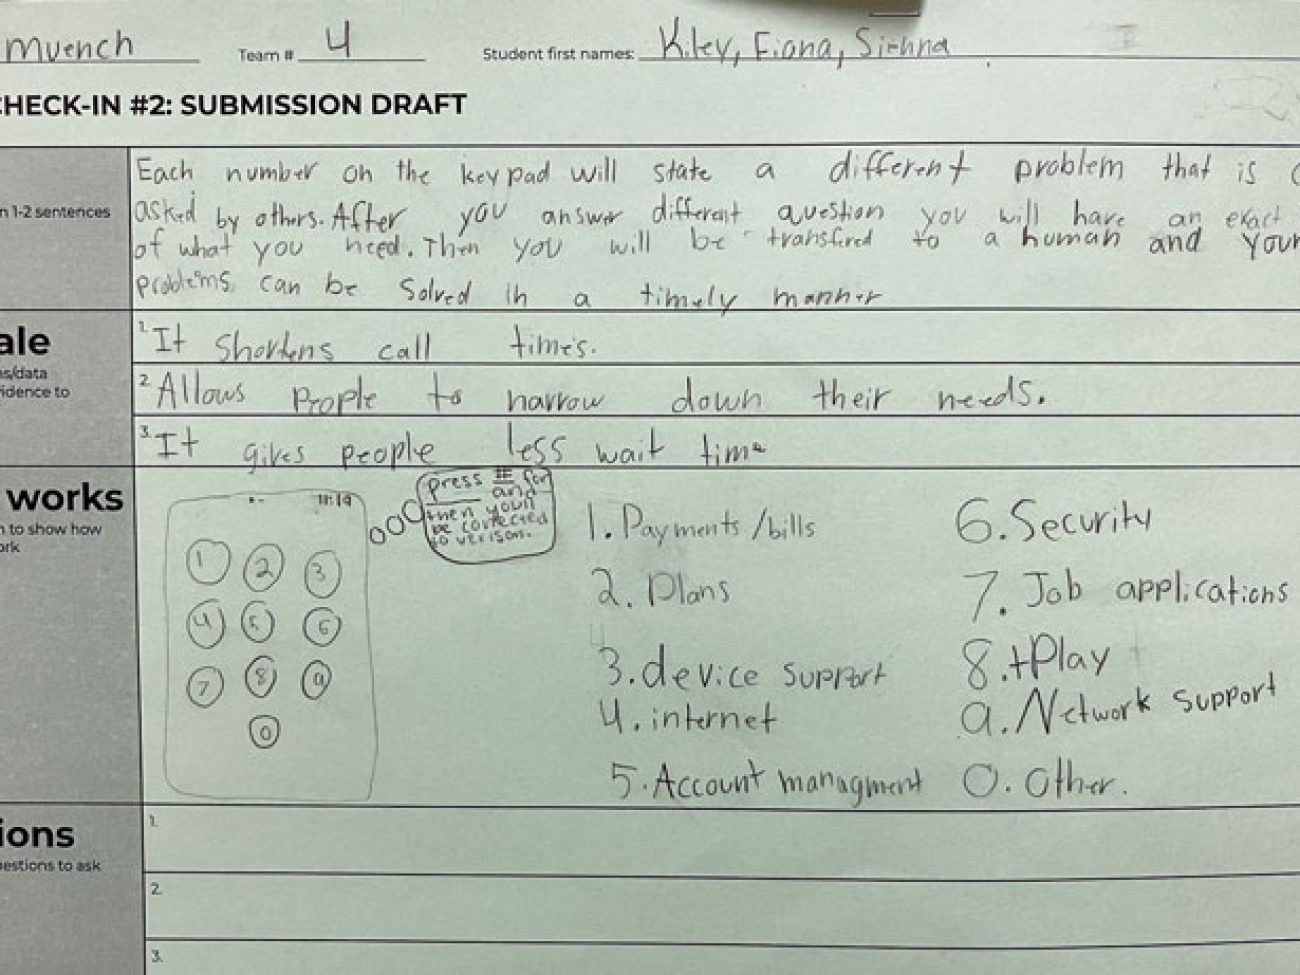 muench Team # 4 Student first names: Kiley, Fiona, Sienna
CHECK-IN #2: SUBMISSION DRAFT
Each number on the keypad will state a different problem that is
n 1-2 sentences
asked by others. After you answer different question you will have an exact
of what you need. Then you will be transfired to a human and your
problems can be solved in a timely manner
ale
1. It shortens call times.
ns/data
idence to
2. Allows people to narrow down their needs.
3. It gives people less wait time
works
n to show how
ork
11:19
press # for
and
then youll
be conected
to verison.
1 2 3
4 5 6
7 8 9
0
1. Payments/bills
2. Plans
3. device support
4. internet
5. Account managment
6. Security
7. Job applications
8. +Play
9. Network support
0. Other.
ions
estions to ask
1.
2.
3.